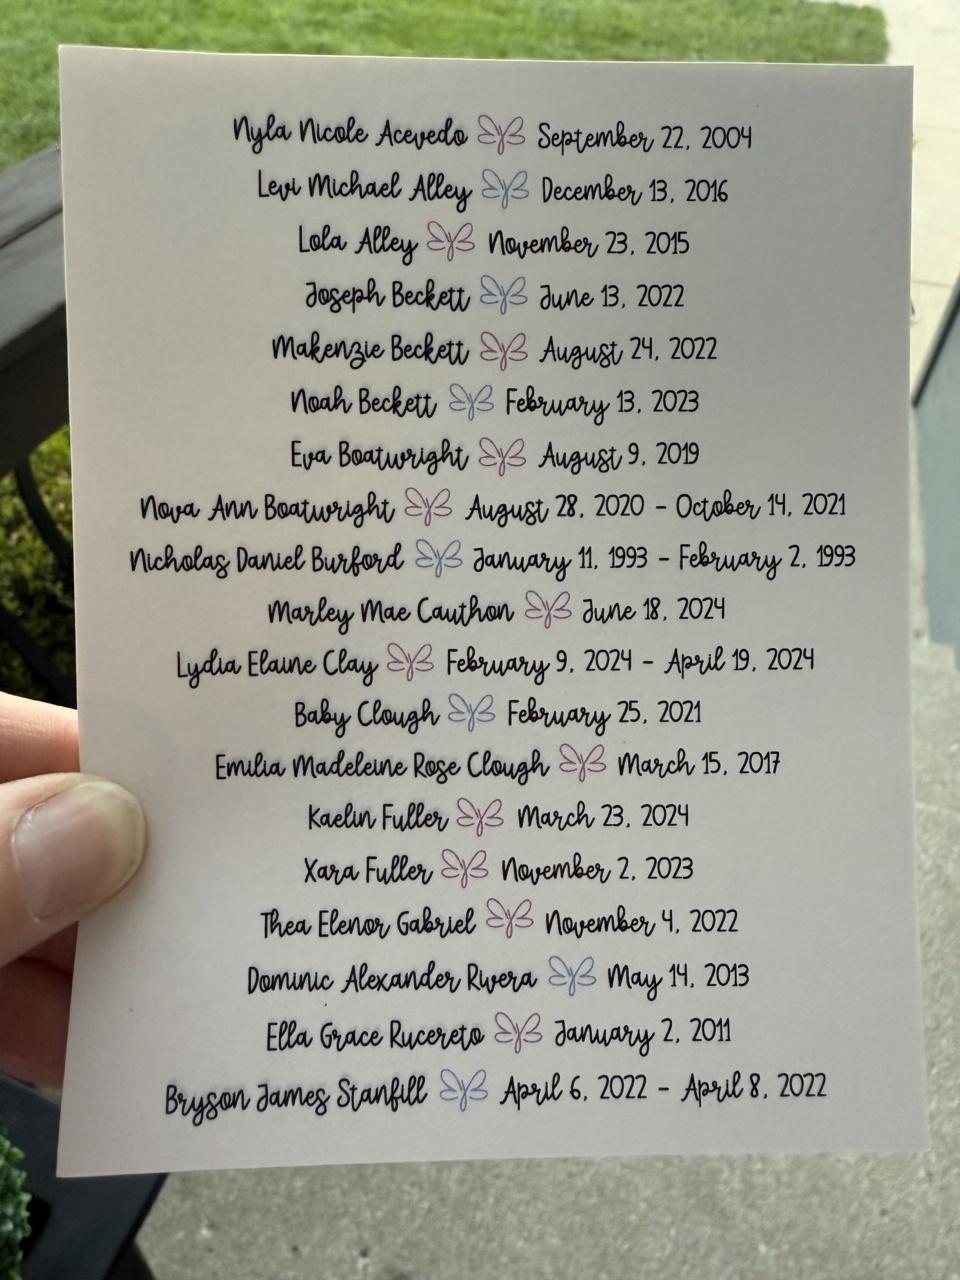 Nyla Nicole Acevedo September 22, 2004
Levi Michael Alley December 13, 2016
Lola Alley November 23, 2015
Joseph Beckett June 13, 2022
Makenzie Beckett August 24, 2022
Noah Beckett February 13, 2023
Eva Boatwright August 9, 2019
Nova Ann Boatwright August 28, 2020 - October 14, 2021
Nicholas Daniel Burford January 11, 1993 - February 2, 1993
Marley Mae Cauthon June 18, 2024
Lydia Elaine Clay February 9, 2024 - April 19, 2024
Baby Clough February 25, 2021
Emilia Madeleine Rose Clough March 15, 2017
Kaelin Fuller March 23, 2024
Xara Fuller November 2, 2023
Thea Elenor Gabriel November 4, 2022
Dominic Alexander Rivera May 14, 2013
Ella Grace Rucereto January 2, 2011
Bryson James Stanfill April 6, 2022 - April 8, 2022